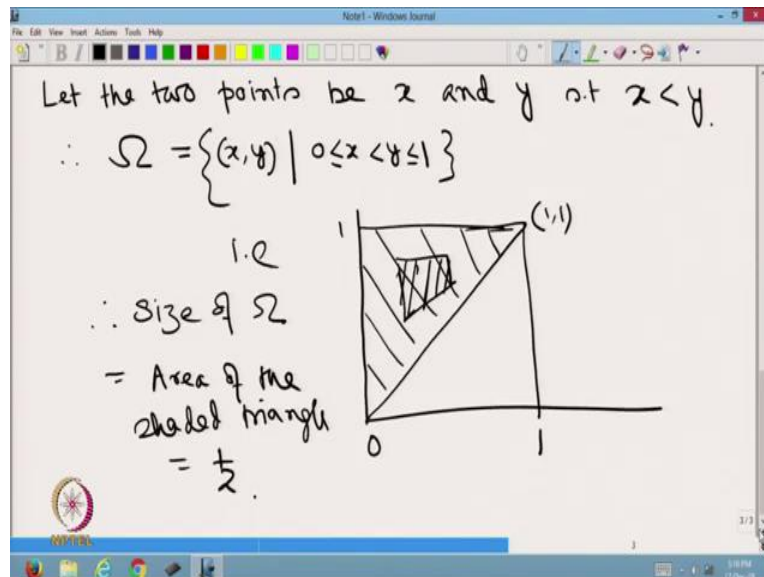 Note1 - Windows Journal
File Edit View Insert Actions Tools Help
Let the two points be x and y s.t x < y.
∴ Ω = {(x,y) | 0≤x<y≤1}
i.e
∴ Size of Ω
= Area of the
shaded triangle
= 1/2.
1
(1,1)
0
1
NPTEL
3/3
3